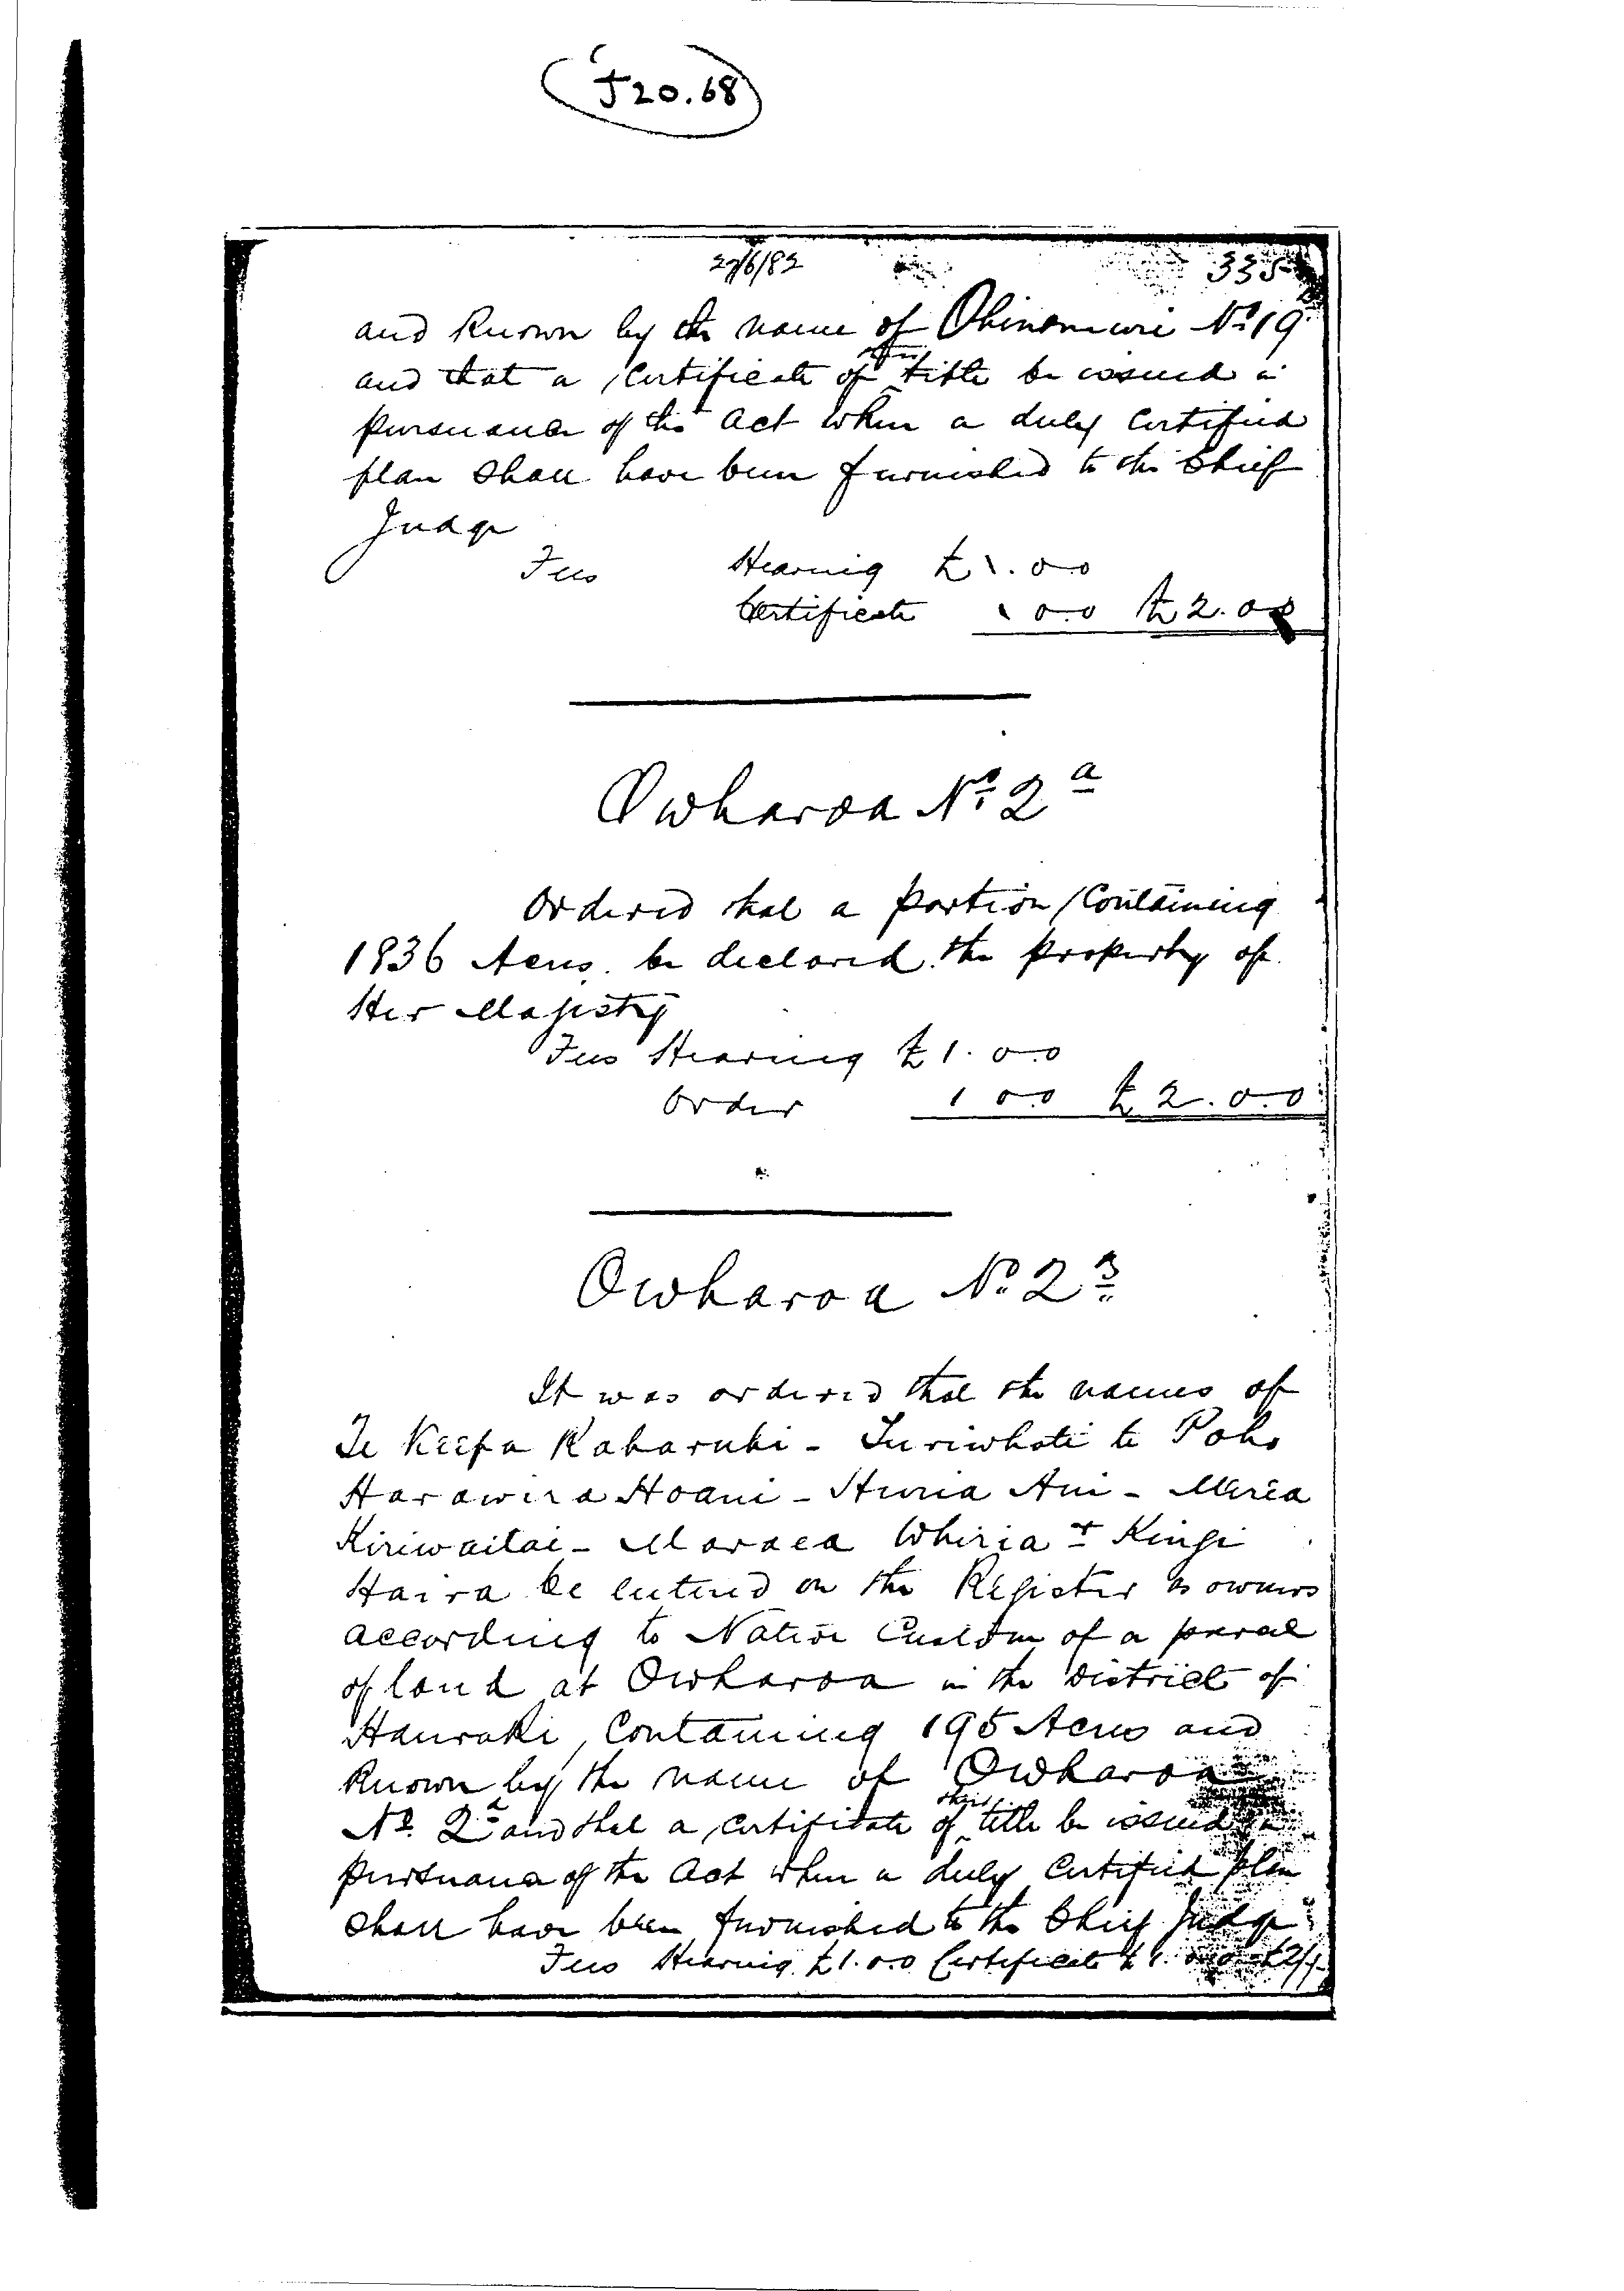 J20.68
27/6/82
335
and known by the name of Ohinemuri No 19
their
and that a certificate of title be issued in
pursuance of the Act when a duly certified
plan shall have been furnished to the Chief
Judge
Fees Hearing £1.0.0
Certificate 1 0.0 £2.0.0
Owharoa No 2a
Ordered that a portion containing
1836 Acres be declared the property of
Her Majesty
Fees Hearing £1.0.0
Order 1 0.0 £2.0.0
Owharoa No. 2B
It was ordered that the names of
Te Keepa Raharuhi - Turiwhati te Poho
Harawira Hoani - Huria Ani - Maria
Kiriwaitai - Maraea Whiria & Kingi
Haira be entered on the Register as owners
according to Native Custom of a parcel
of land at Owharoa in the District of
Hauraki, containing 195 Acres and
known by the name of Owharoa
their
No. 2 and that a certificate of title be issued in
pursuance of the Act when a duly certified plan
shall have been furnished to the Chief Judge
Fees Hearing £1.0.0 Certificate £1.